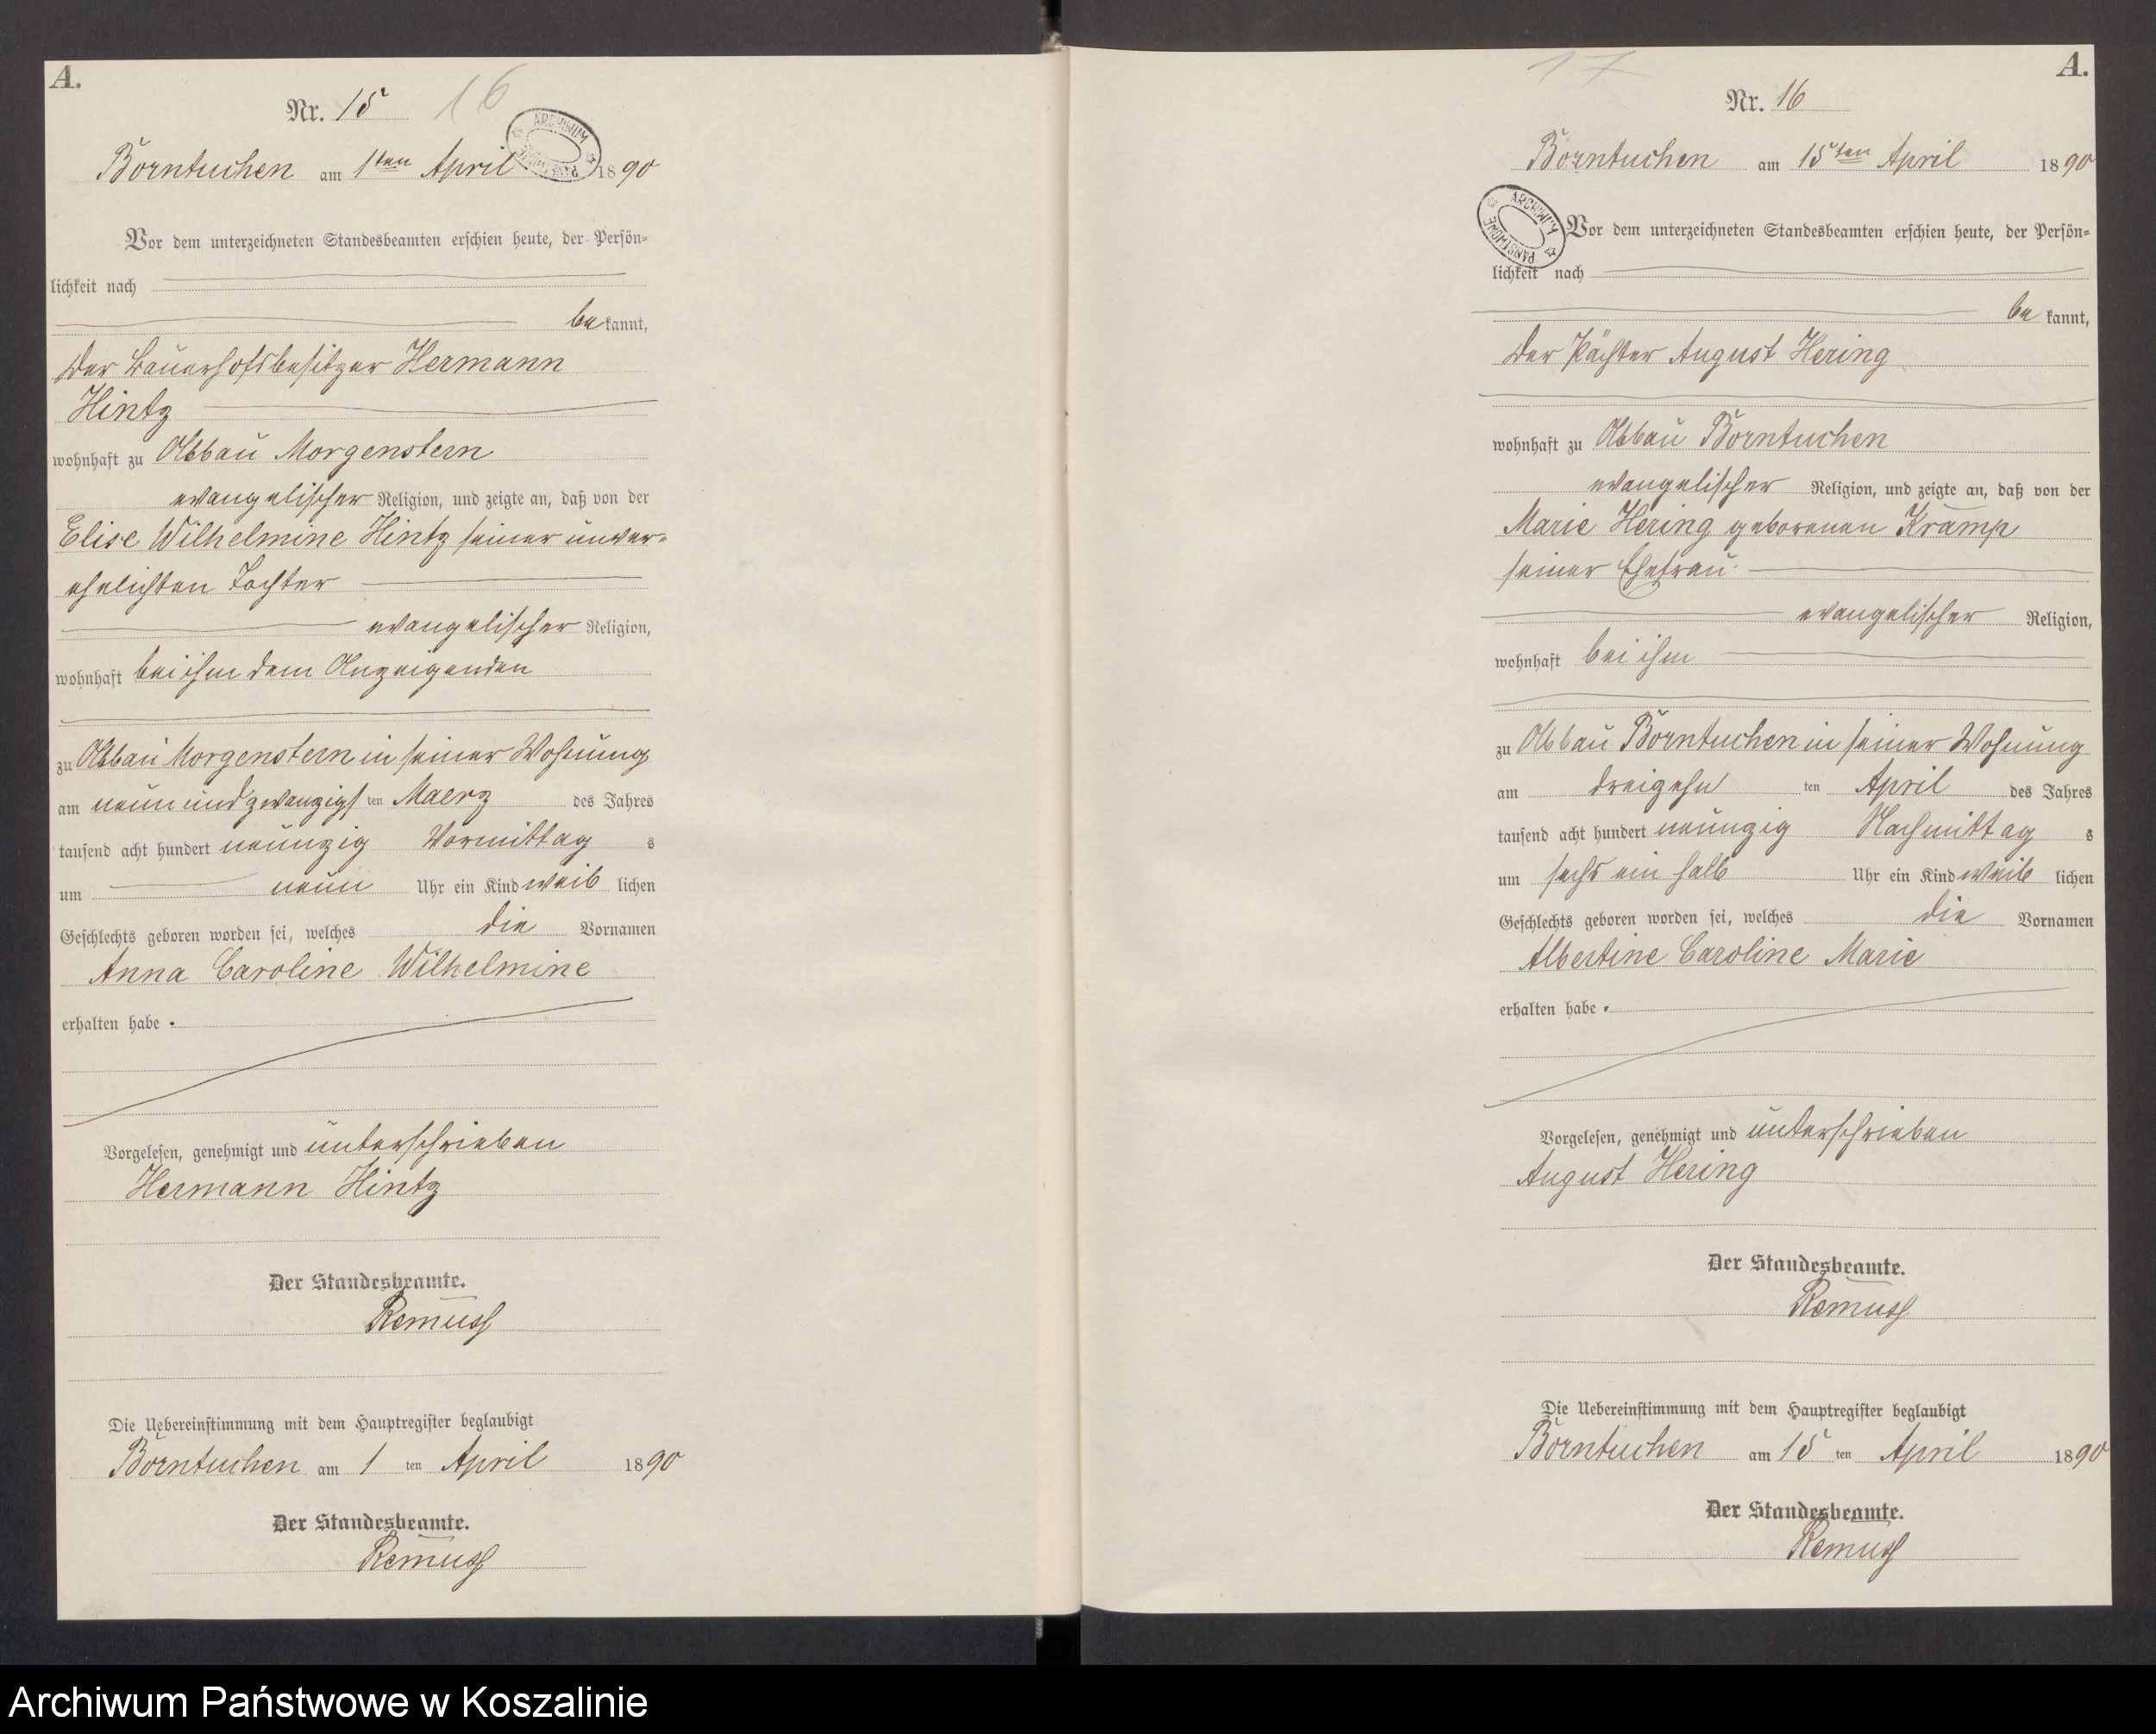 A.
Nr. 15
16
ARCHIWUM PAŃSTWOWE
Borntuchen am 1ten April 1890
Vor dem unterzeichneten Standesbeamten erschien heute, der Persön=
lichkeit nach
bekannt,
der Bauerhofsbesitzer Hermann
Hintz
wohnhaft zu Abbau Morgenstern
evangelischer Religion, und zeigte an, daß von der
Elise Wilhelmine Hintz seiner unver=
ehelichten Tochter
evangelischer Religion,
wohnhaft bei ihm dem Anzeigenden
zu Abbau Morgenstern in seiner Wohnung
am neun und zwanzigsten Maerz des Jahres
tausend acht hundert neunzig Vormittags
um neun Uhr ein Kind weiblichen
Geschlechts geboren worden sei, welches die Vornamen
Anna Caroline Wilhelmine
erhalten habe.
Vorgelesen, genehmigt und unterschrieben
Hermann Hintz
Der Standesbeamte.
Remuss
Die Uebereinstimmung mit dem Hauptregister beglaubigt
Borntuchen am 1 ten April 1890
Der Standesbeamte.
Remuss
17
A.
Nr. 16
Borntuchen am 15ten April 1890
ARCHIWUM PAŃSTWOWE
Vor dem unterzeichneten Standesbeamten erschien heute, der Persön=
lichkeit nach
bekannt,
der Pächter August Hering
wohnhaft zu Abbau Borntuchen
evangelischer Religion, und zeigte an, daß von der
Marie Hering geborenen Kramp
seiner Ehefrau
evangelischer Religion,
wohnhaft bei ihm
zu Abbau Borntuchen in seiner Wohnung
am dreizehn ten April des Jahres
tausend acht hundert neunzig Nachmittags
um sechs ein halb Uhr ein Kind weiblichen
Geschlechts geboren worden sei, welches die Vornamen
Albertine Caroline Marie
erhalten habe.
Vorgelesen, genehmigt und unterschrieben
August Hering
Der Standesbeamte.
Remuss
Die Uebereinstimmung mit dem Hauptregister beglaubigt
Borntuchen am 15 ten April 1890
Der Standesbeamte.
Remuss
Archiwum Państwowe w Koszalinie